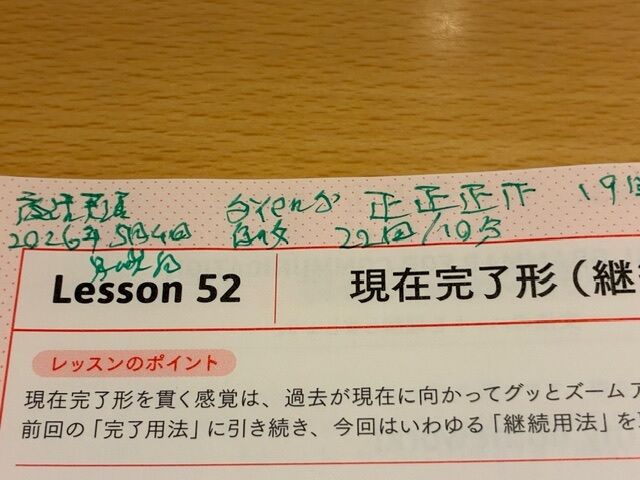 正正正下 19
2026年5月4日 22回/10分
Lesson 52 現在完了形（継
レッスンのポイント
現在完了形を貫く感覚は、過去が現在に向かってグッとズームア
前回の「完了用法」に引き続き、今回はいわゆる「継続用法」を